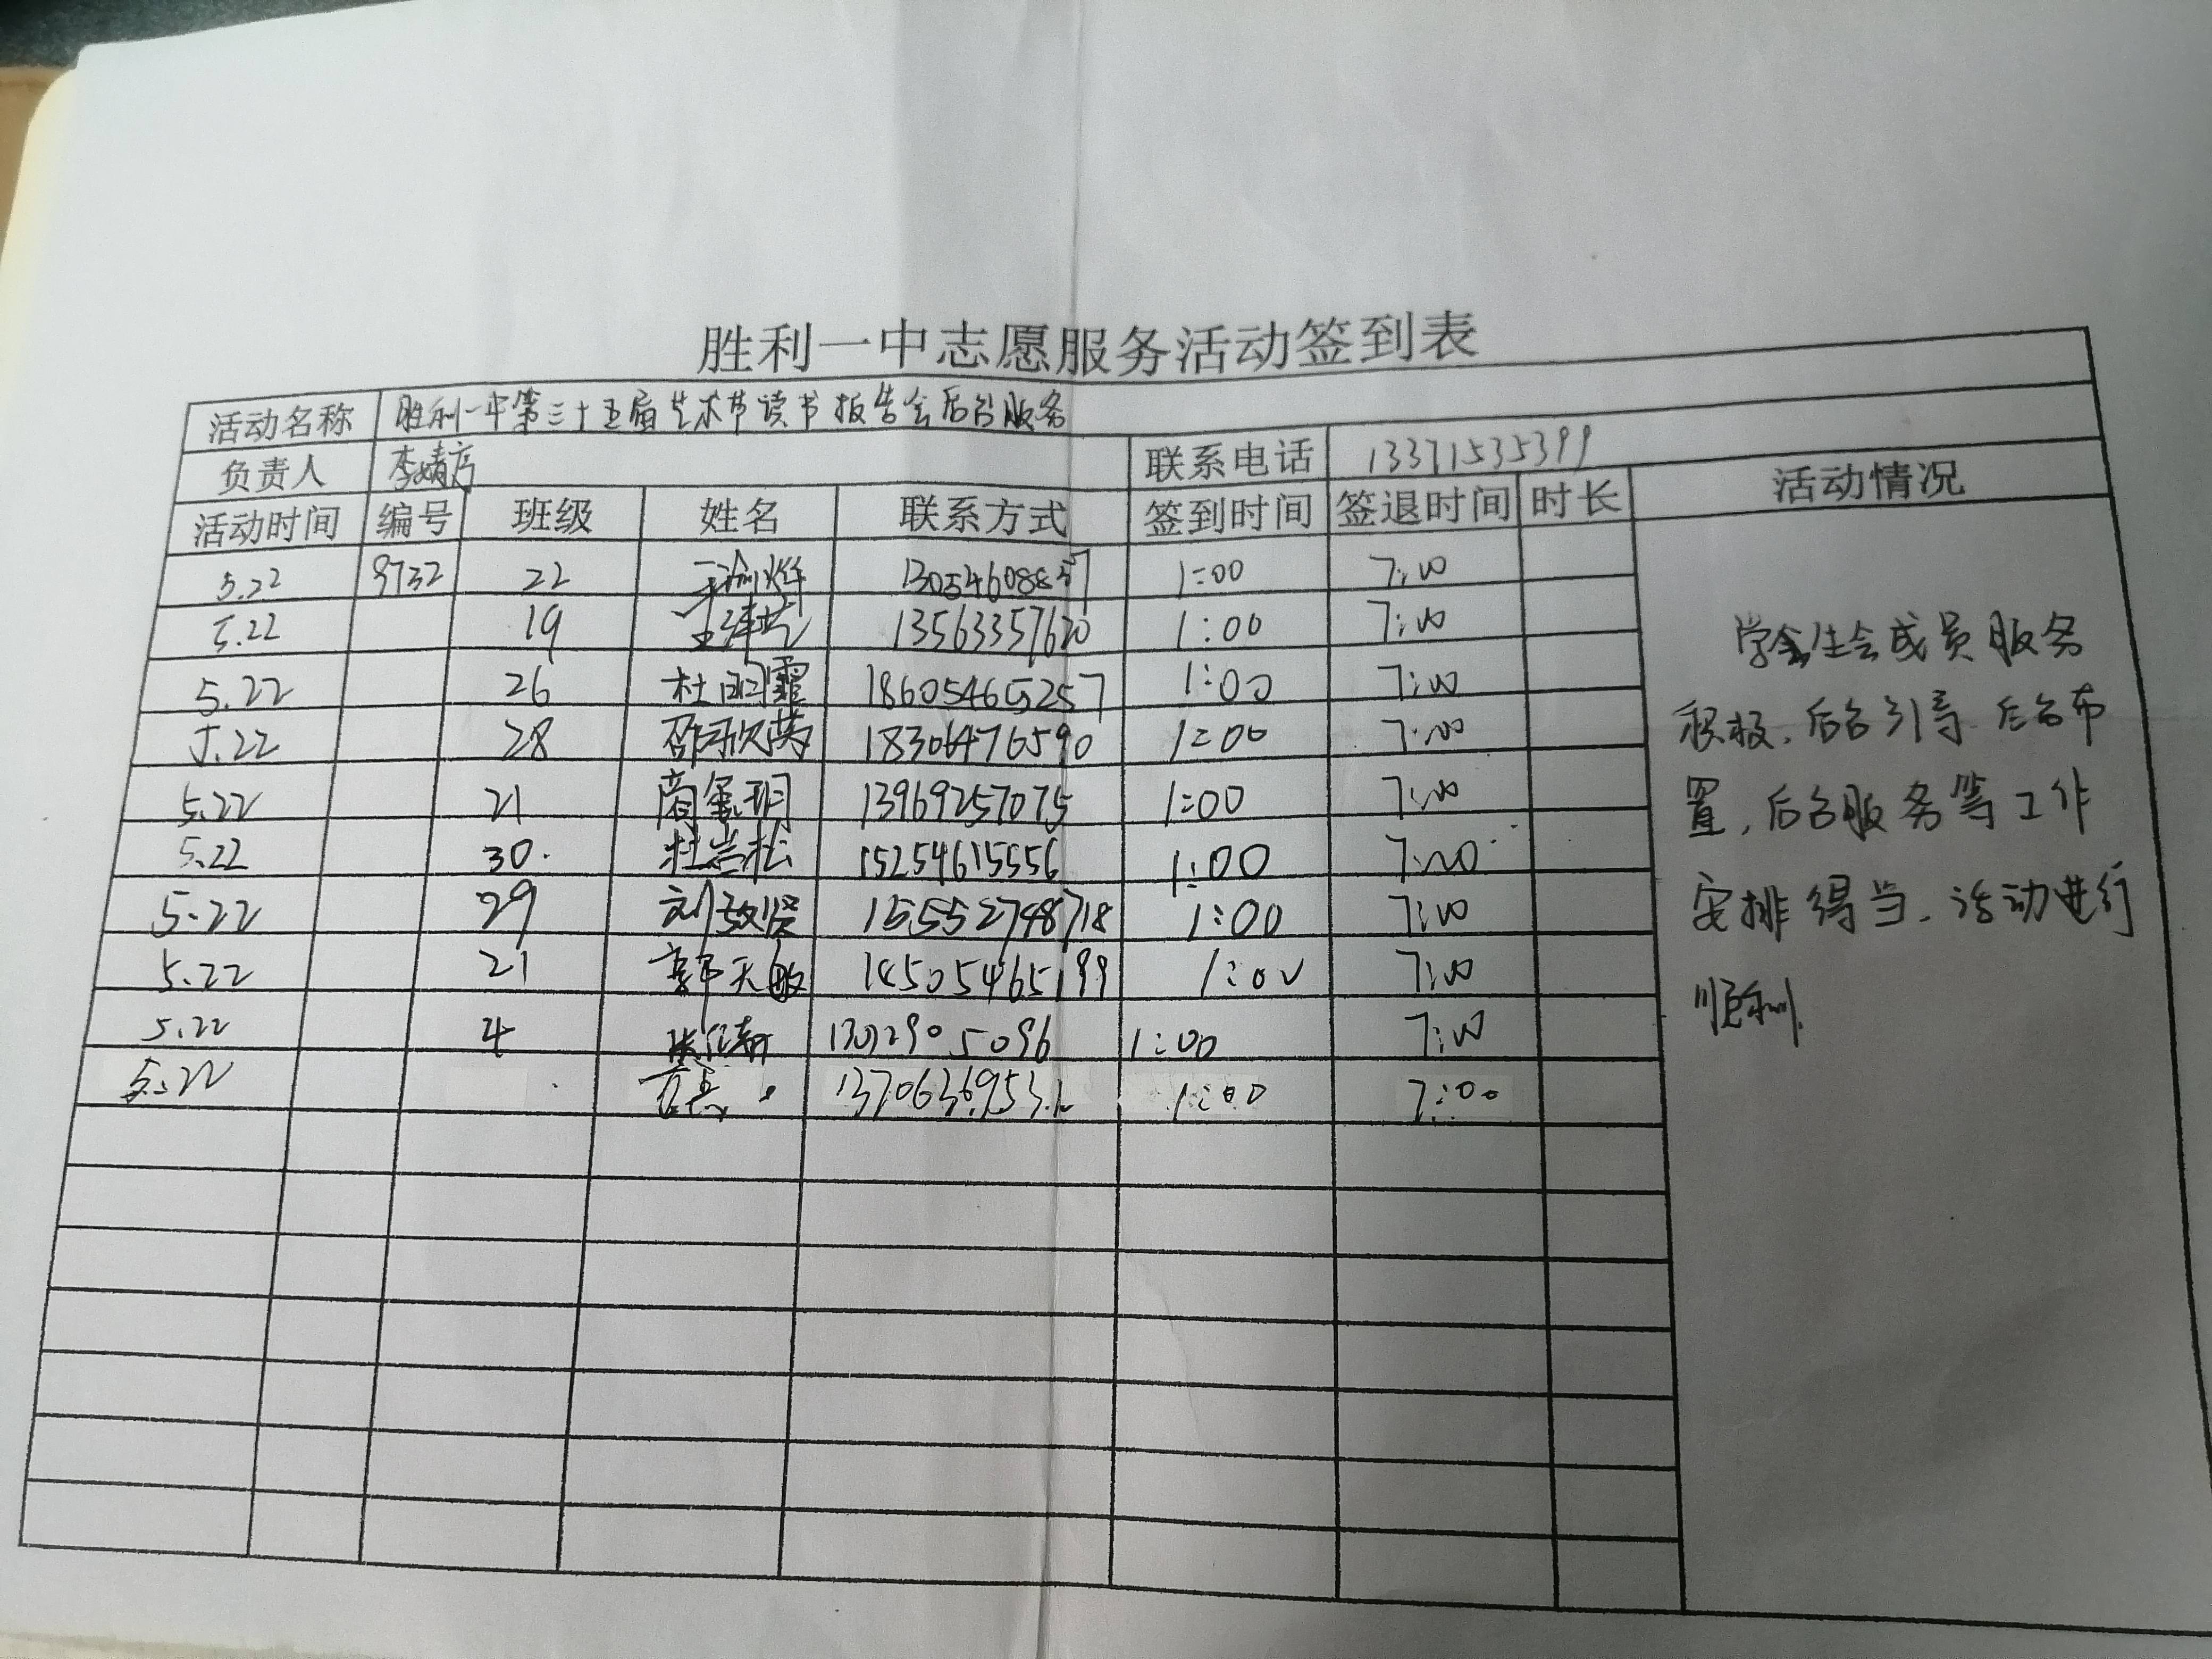 胜利一中志愿服务活动签到表
活动名称 胜利一中第三十五届艺术节读书报告会后台服务
负责人 李婧 联系电话 13371535399
活动时间 编号 班级 姓名 联系方式 签到时间 签退时间 时长 活动情况
5.22 9732 22 1:00 7:00
5.22 19 13563357620 1:00 7:00
5.22 26 杜 霏 18605465257 1:00 7:00
5.22 28 邵 18306476590 1:00 7:00
5.22 21 商 玥 13969257075 1:00 7:00
5.22 30 杜岩松 15254615556 1:00 7:00
5.22 29 刘 贤 15552748718 1:00 7:00
5.22 21 天 1:00 7:00
5.22 4 张 1:00 7:00
5.22 1:00 7:00
学生会成员服务
积极,后台引导 后台布
置,后台服务等工作
安排得当,活动进行
顺利.